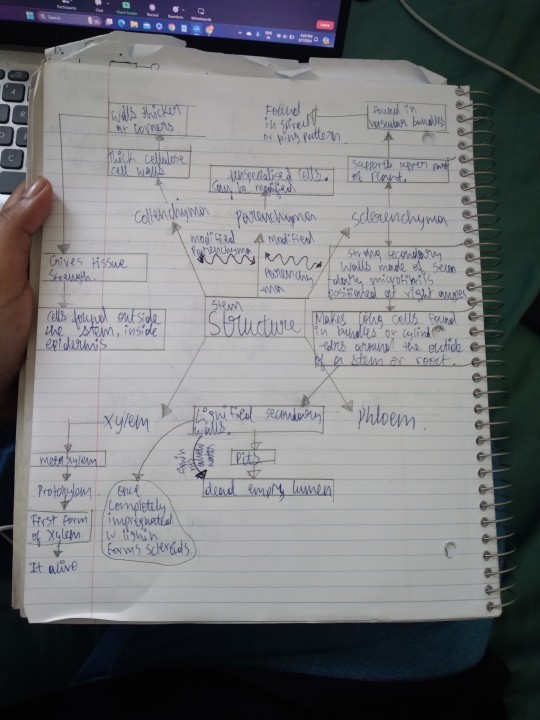 Walls thicker
at corners
Found
in spiral
or ring pattern.
Found in
vascular bundles
Thick cellulose
cell walls
unspecialised cells.
Can be modified
Supports upper part
of plant.
Collenchyma
Parenchyma
Sclerenchyma
modified
Parenchyma
modified
Parenchy
-ma
Gives tissue
strength.
Strong secondary
walls made of
microfibrils
positioned at right angles
Stem
Structure
Cells found outside
the stem, inside
epidermis
Makes long cells found
in bundles or cylind
-ers around the outside
of a stem or root.
Xylem
Lignified secondary
walls.
Phloem.
metaxylem
Pits
Protoxylem
dead empty lumen
First form
of xylem
Once
completely
impregnated
w lignin
forms sclereids.
It alive